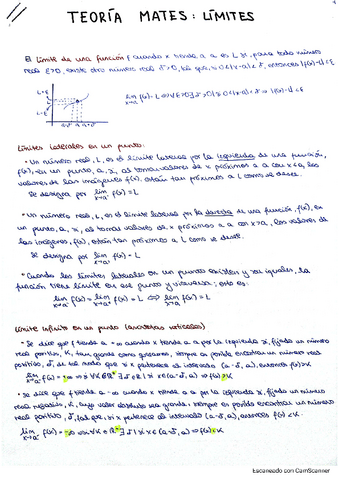 TEORÍA MATES: LÍMITES
El límite de una función f cuando x tiende a a es L si, para todo número
real ε>0, existe otro número real δ>0, tal que, si 0<|x-a|<δ, entonces |f(x)-L|<ε
Límites laterales en un punto:
· Un número real, L, es el límite lateral por la izquierda de una función,
f(x), en un punto, a, si, al tomar valores de x próximos a a con x<a, los
valores de las imágenes f(x), están tan próximos a L como se desee.
Se designa por lim f(x)=L
x→a⁻
· Un número real, L, es el límite lateral por la derecha de una función, f(x), en
un punto, a, si, al tomar valores de x próximos a a con x>a, los valores de
las imágenes, f(x), están tan próximos a L como se desee.
Se designa por lim f(x)=L
x→a⁺
· Cuando los límites laterales en un punto existen y son iguales, la
función tiene límite en ese punto y viceversa; esto es:
lim f(x) = lim f(x) = L ⇔ lim f(x) = L
x→a⁻ x→a⁺ x→a
Límite infinito en un punto (asíntotas verticales)
· Se dice que f tiende a +∞ cuando x tiende a a por la izquierda si, fijado un número
real positivo, K, tan grande como queramos, siempre es posible encontrar un número real
positivo, δ, de tal modo que si x pertenece al intervalo (a-δ, a), entonces f(x)>K
· Se dice que f tiende a -∞ cuando x tiende a a por la izquierda si, fijado un número
real negativo, K, cuyo valor absoluto sea grande, siempre es posible encontrar un número
real positivo δ, tal que, si x pertenece al intervalo (a-δ, a), entonces f(x)<K.
Escaneado con CamScanner